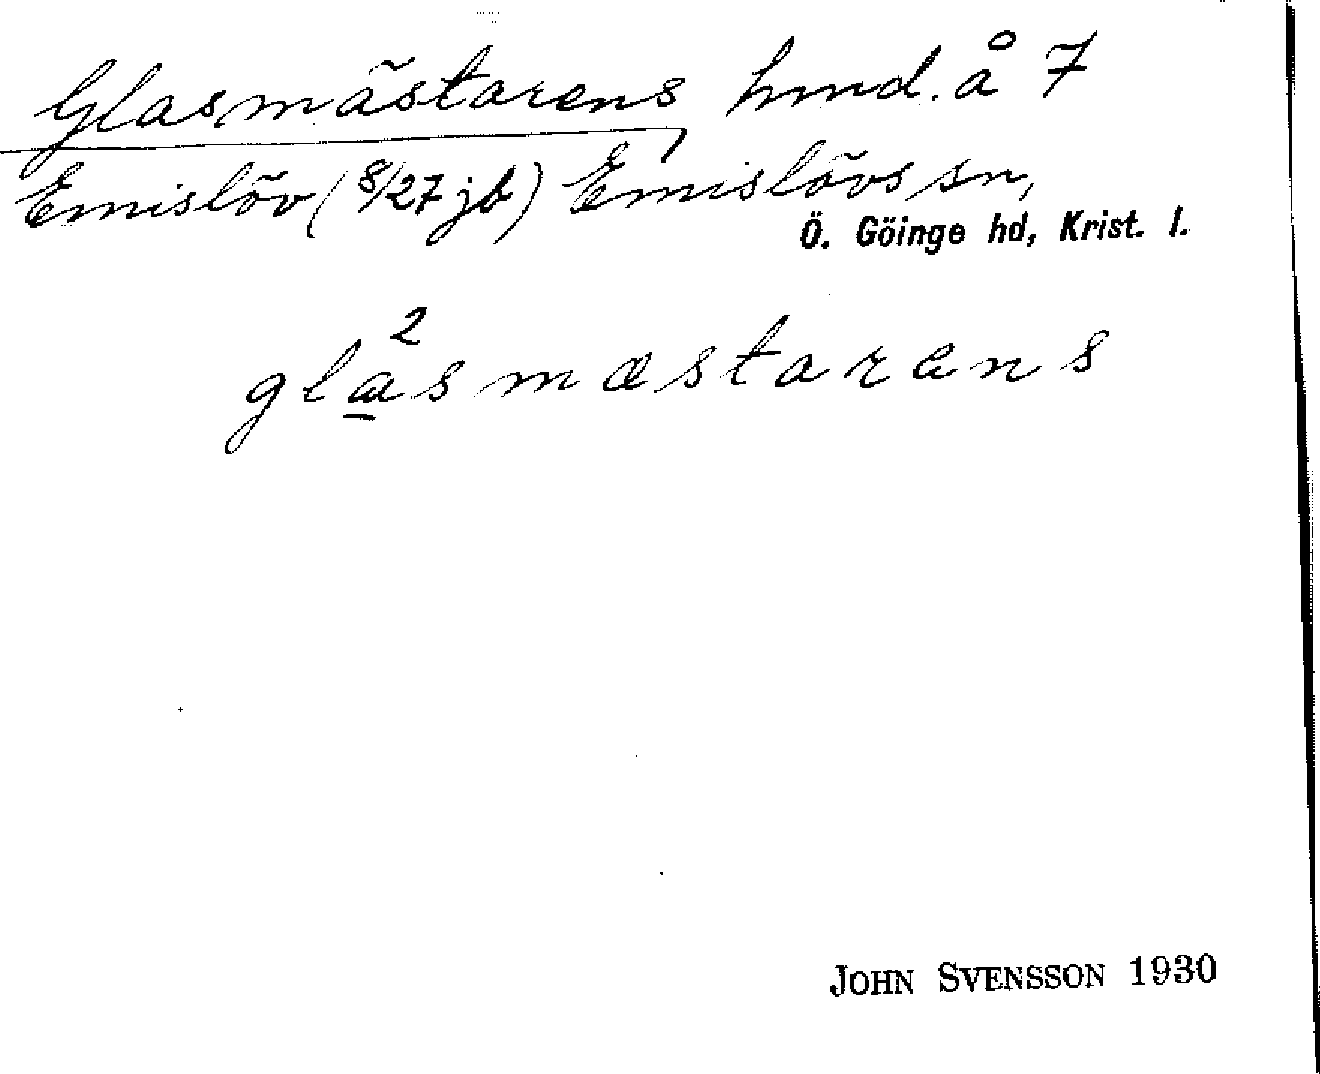 Glasmästarens, hmd. å 7
Emislöv (8/27 jb) Emislövs sn,
Ö. Göinge hd, Krist. l.
2
glasmæstarens
JOHN SVENSSON 1930